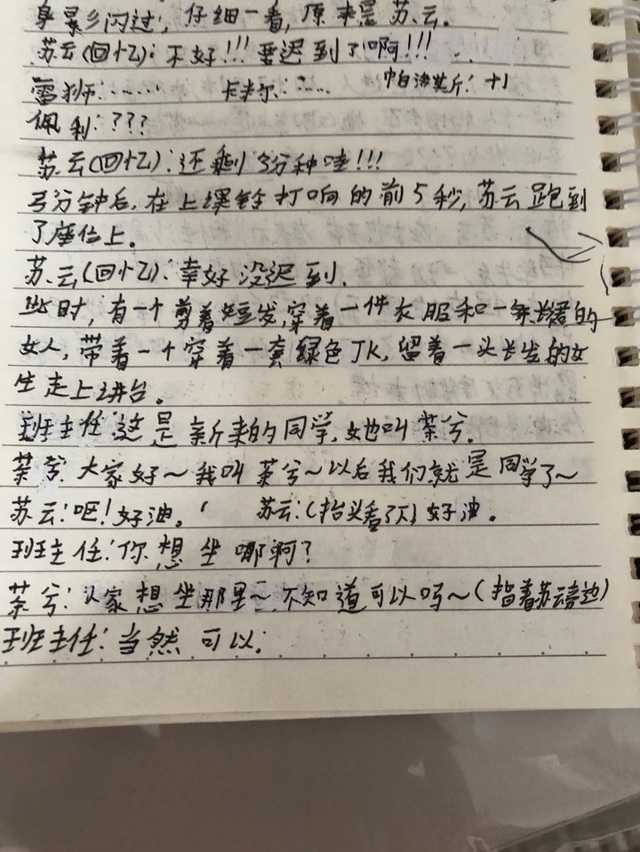 身影闪过,仔细一看,原来是苏云。
苏云(回忆):不好!!!要迟到了啊!!!
雷狮:…… 卡米尔:…… 帕洛斯:+1
佩利:???
苏云(回忆):还剩3分种哇!!!
3分钟后,在上课铃打响的前5秒,苏云跑到
了座位上。
苏云(回忆):幸好没迟到.
此时,有一个剪着短发,穿着一件衣服和一条长裙的
女人,带着一个穿着一套绿色JK,留着一头长发的女
生走上讲台。
班主任:这是新来的同学,她叫茶兮.
茶兮:大家好~我叫茶兮~以后我们就是同学了~
苏云:呕!好油。 苏云:(抬头看了下)好油。
班主任:你想坐哪啊?
茶兮:人家想坐那里~不知道可以吗~(指着苏云旁边)
班主任:当然可以.